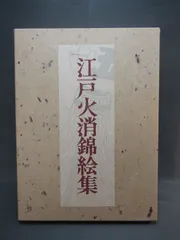 江戸火消錦絵集